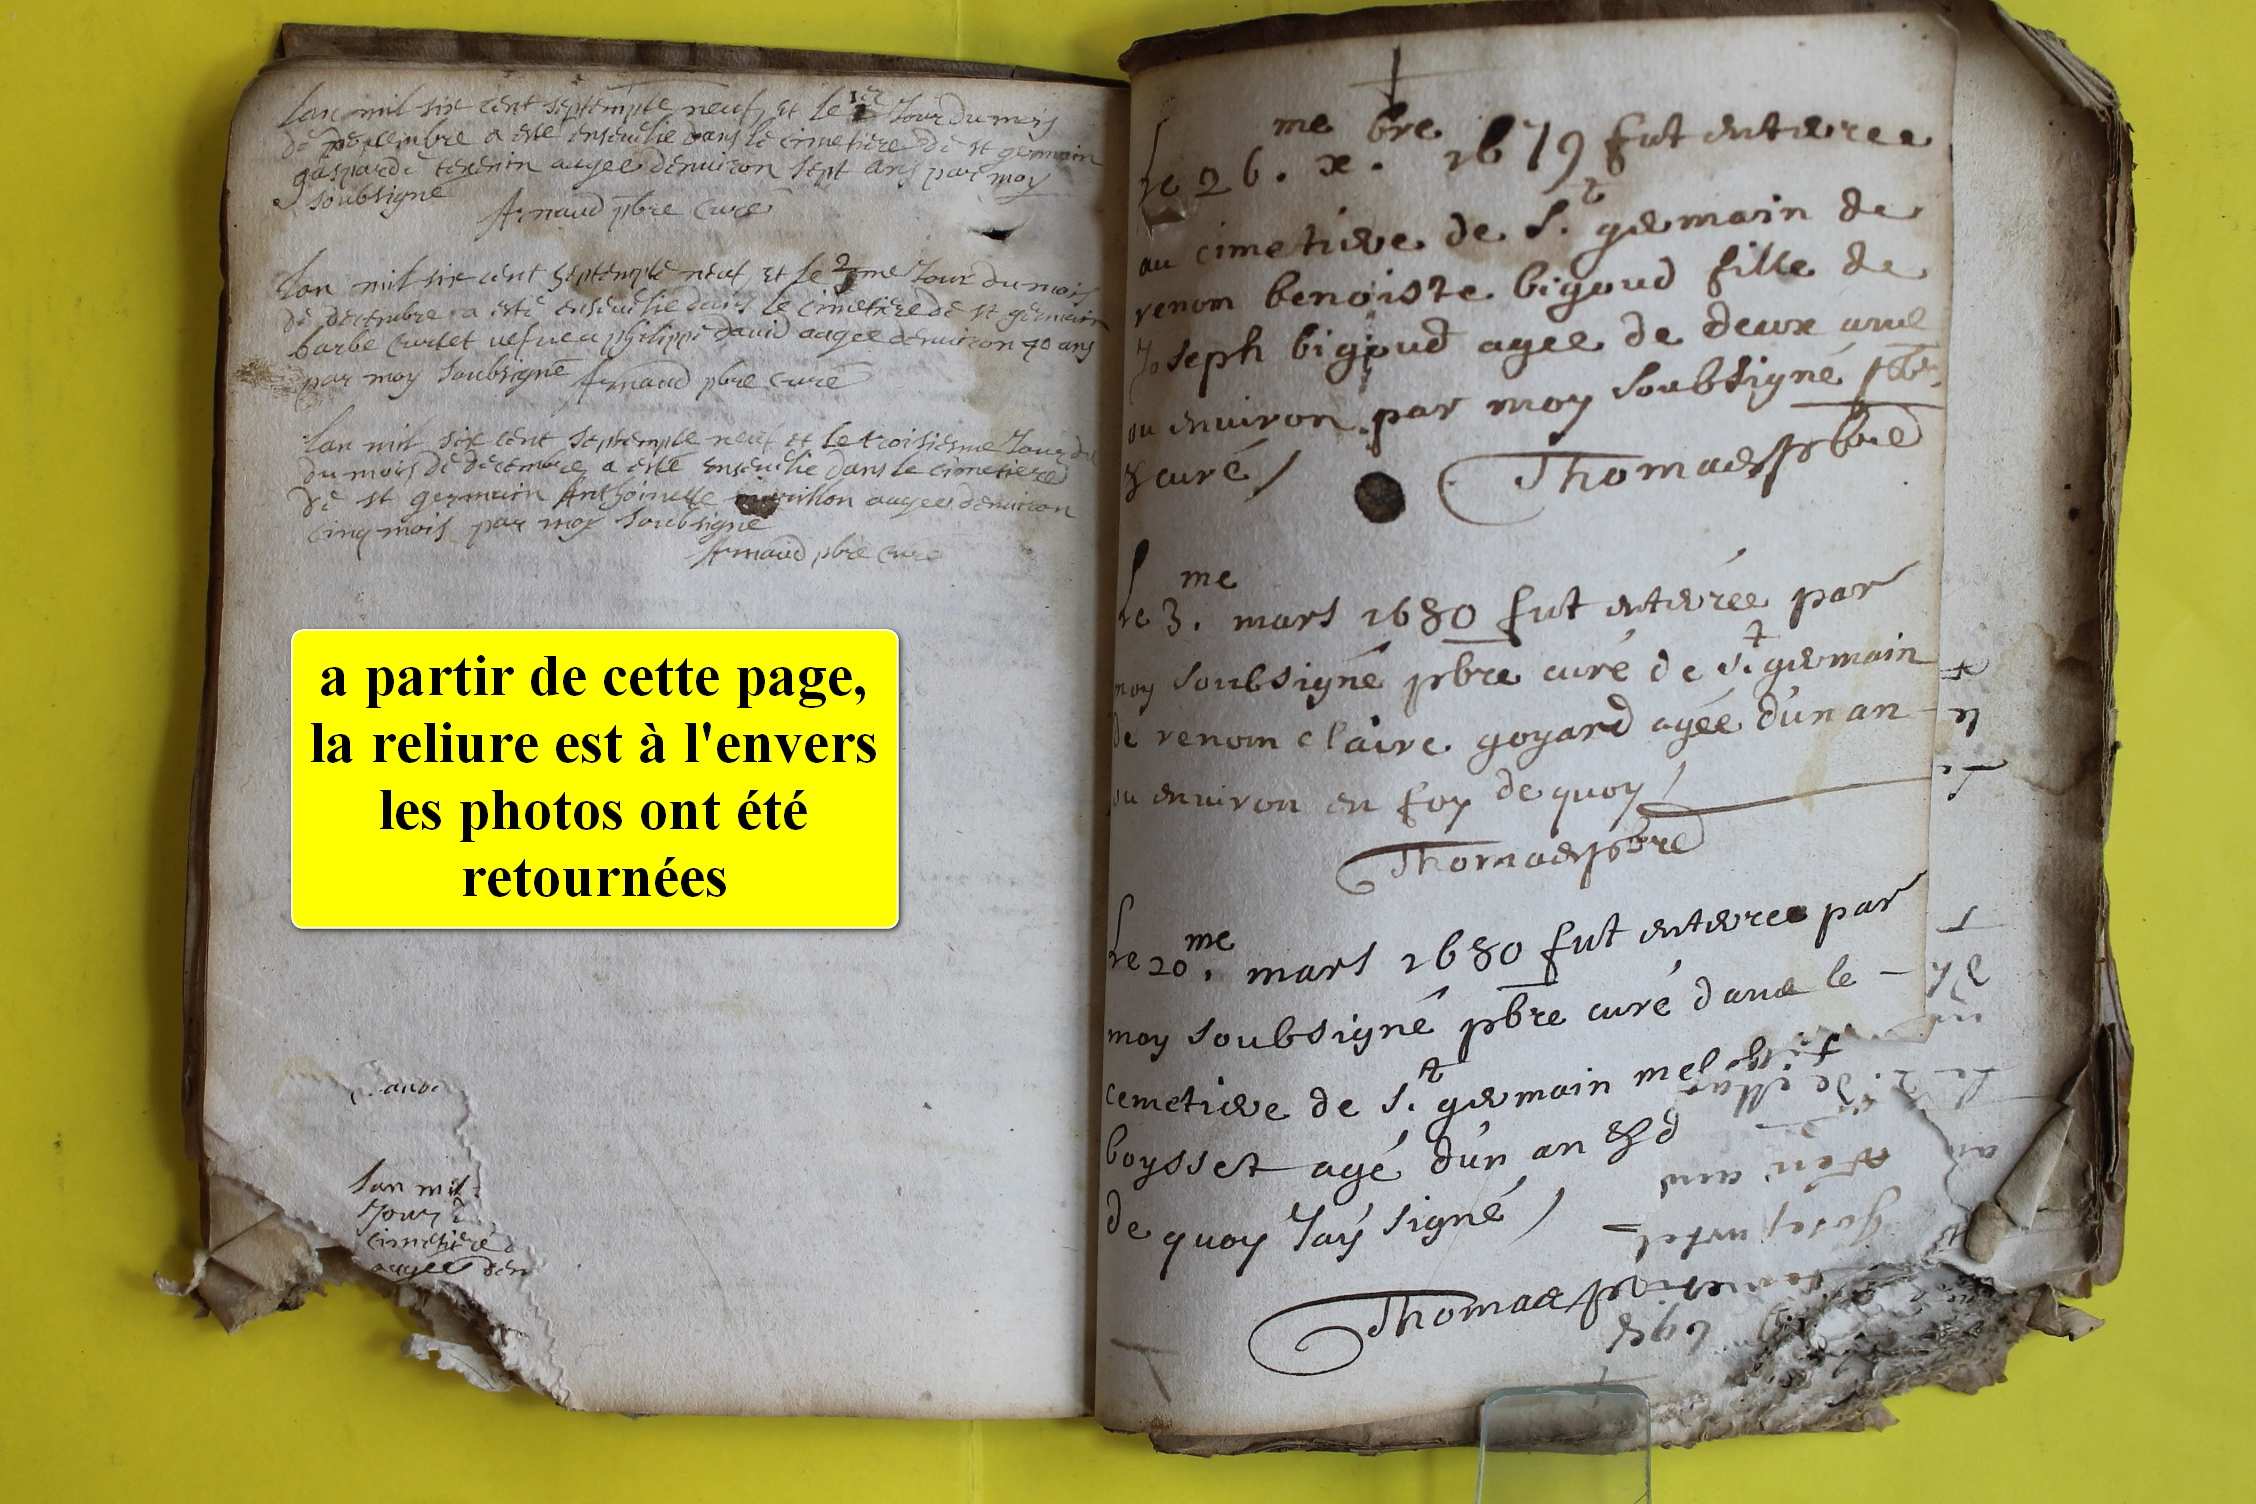 Lan mil six cent septempte neuf et le 1er Jour du mois
de decembre a este enseuelie dans le cimetiere de st germain
gasparde terenin augee denuiron sept ans par moy
soubsigne
Arnaud pbre curé
Lan mil six cent septempte neuf et le 2me Jour du mois
de decembre a esté enseuelie dans le cimetiere de st germain
barbe curtet uefue a philippe dauid augee denuiron 40 ans
par moy soubsigne Arnaud pbre curé
Lan mil six cent septempte neuf et le troisiesme Jour du
du mois de decembre a esté enseuelie dans le cimetiere
de st germain Anthoinette augee denuiron
cinq mois par moy soubsigne
Arnaud pbre cure
a partir de cette page,
la reliure est à l'envers
les photos ont été
retournées
Lan mil
Jour
cimetiere
augee den
le 26.me x.bre 1679 fut enterree
au cimetiere de S.t germain de
renom benoiste bigoud fille de
Joseph bigoud agee de deux ans
ou enuiron par moy soubsigné pbre
& curé /
Thomas pbre
le 3.me mars 1680 fut enterée par
moy soubsigné pbre curé de s.t germain
de renom claire goyard agée d'un an
ou enuiron en foy de quoy /
Thomas pbre
le 20.me mars 1680 fut enterree par
moy soubsigné pbre curé dans le
cemetiere de S.t germain
boysset agé d'un an
de quoy Jay signé /
Thomas